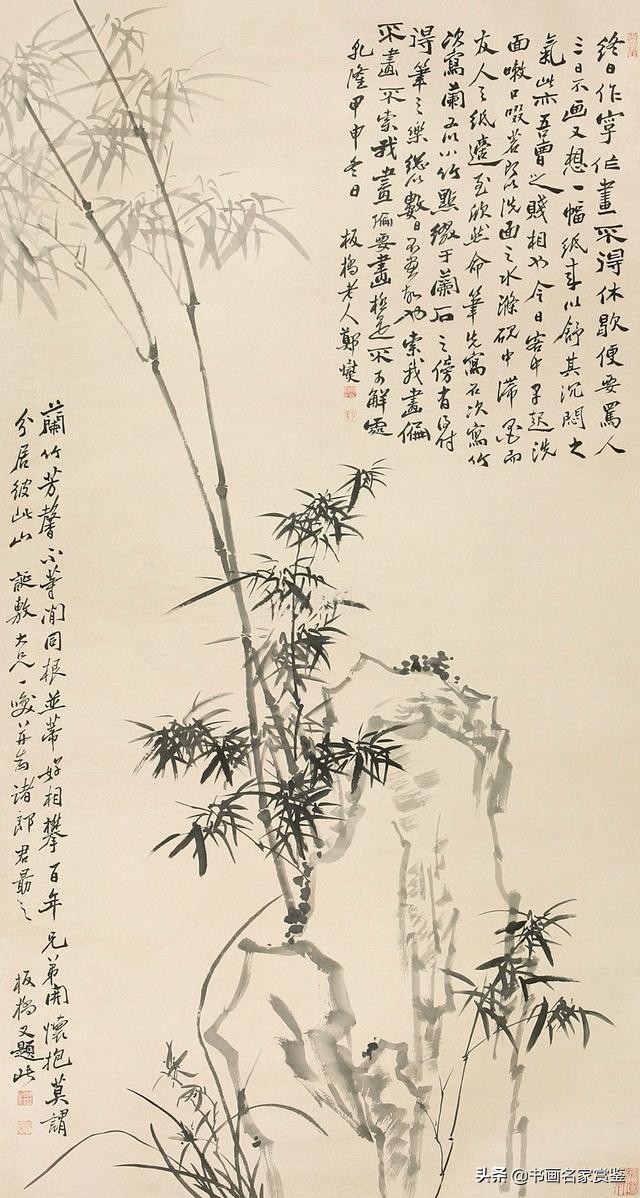 终日作字作畫不得休歇便要罵人
三日不画又想一幅紙来以舒其沉悶之
氣此亦吾曹之賤相也今日客中早起洗
面嗽口啜茗即以洗面之水滌硯中滞墨而
友人之紙適至欣然命筆先寫石次寫竹
次寫蘭又以小竹點綴于蘭石之傍有
得筆之樂總以數日不畫故也索我畫偏
不畫不索我畫偏要畫極是不可解處
乾隆甲申冬日 板橋老人鄭燮
蘭竹芳馨不等閒同根並蒂好相攀百年兄弟開懷抱莫謂
分居彼此山 誕敷大兄一噱并為諸郎君勗之 板橋又題此
头条 @书画名家赏鉴